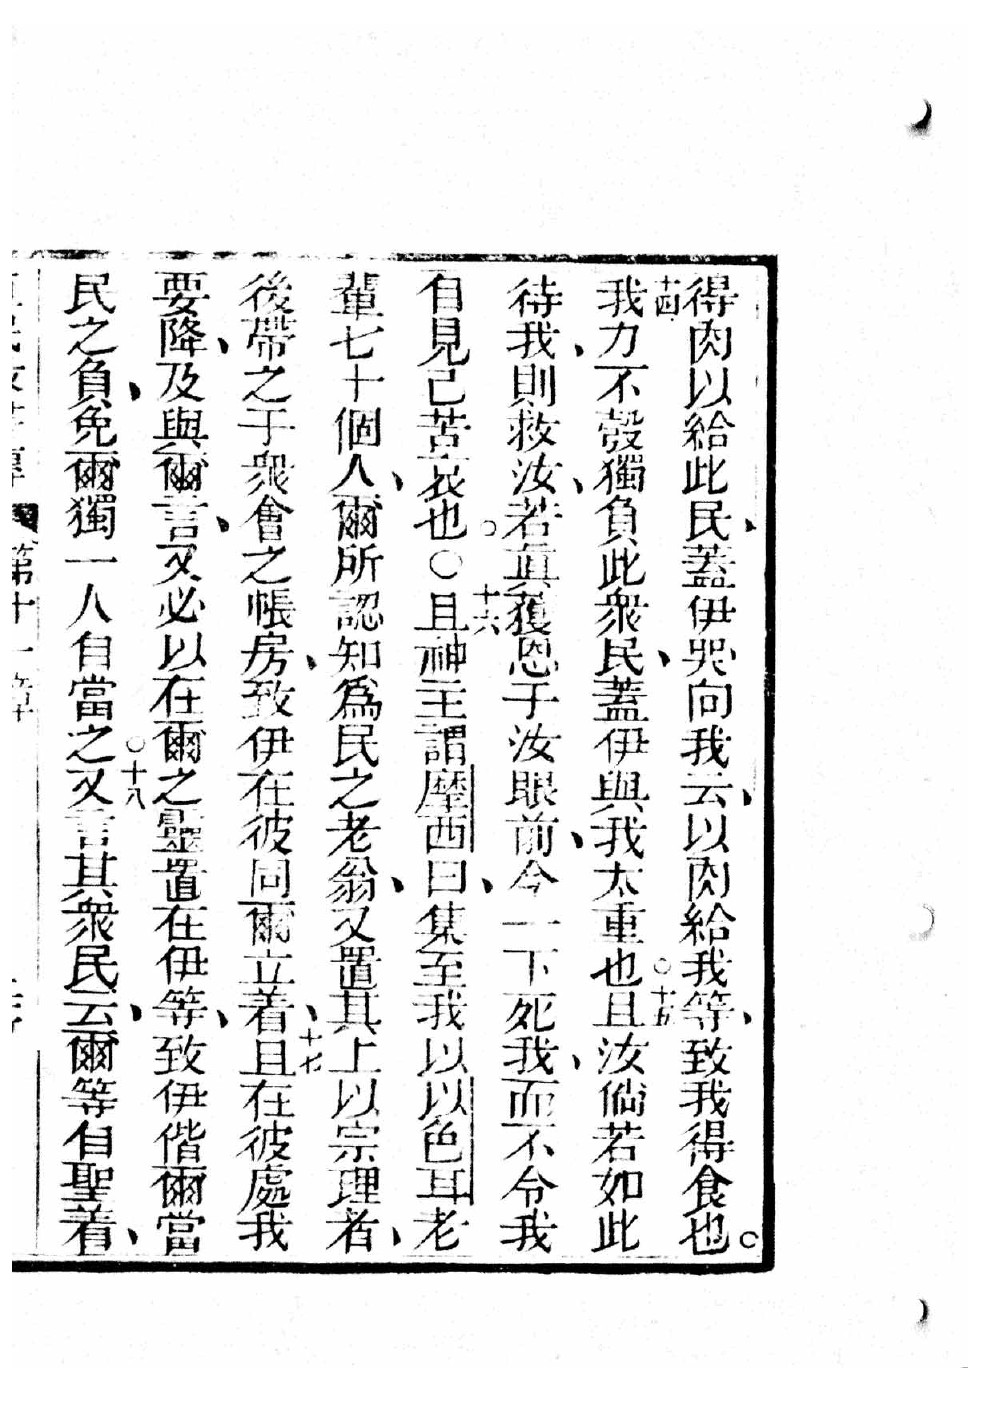 得肉以給此民、蓋伊哭向我云、以肉給我等、致我得食也。
十四我力不彀獨負此衆民、蓋伊與我太重也。十五且汝倘若如此
待我、則救汝、若眞獲恩于汝眼前、今一下死我、而不令我
自見己苦衷也。○十六且神主謂摩西曰、集至我以以色耳老
輩七十個人、爾所認知爲民之老翁、又置其上以宗理者、
後帶之于衆會之帳房、致伊在彼同爾立着、十七且在彼處我
要降、及與爾言、又必以在爾之靈置在伊等、致伊偕爾當
民之負、免爾獨一人自當之。十八又言其衆民云、爾等自聖着、
第十一章